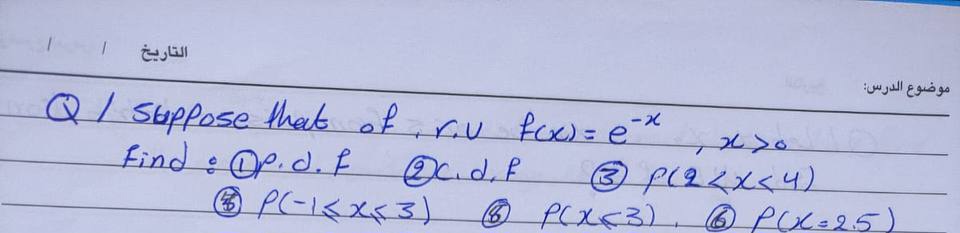 التاريخ / /
موضوع الدرس:
Q / Suppose that of r.v f(x) = e^-x , x>0
Find : ① p.d.f ② c.d.f ③ P(2<x<4)
④ P(-1≤x≤3) ⑤ P(x≤3). ⑥ P(x=2.5)